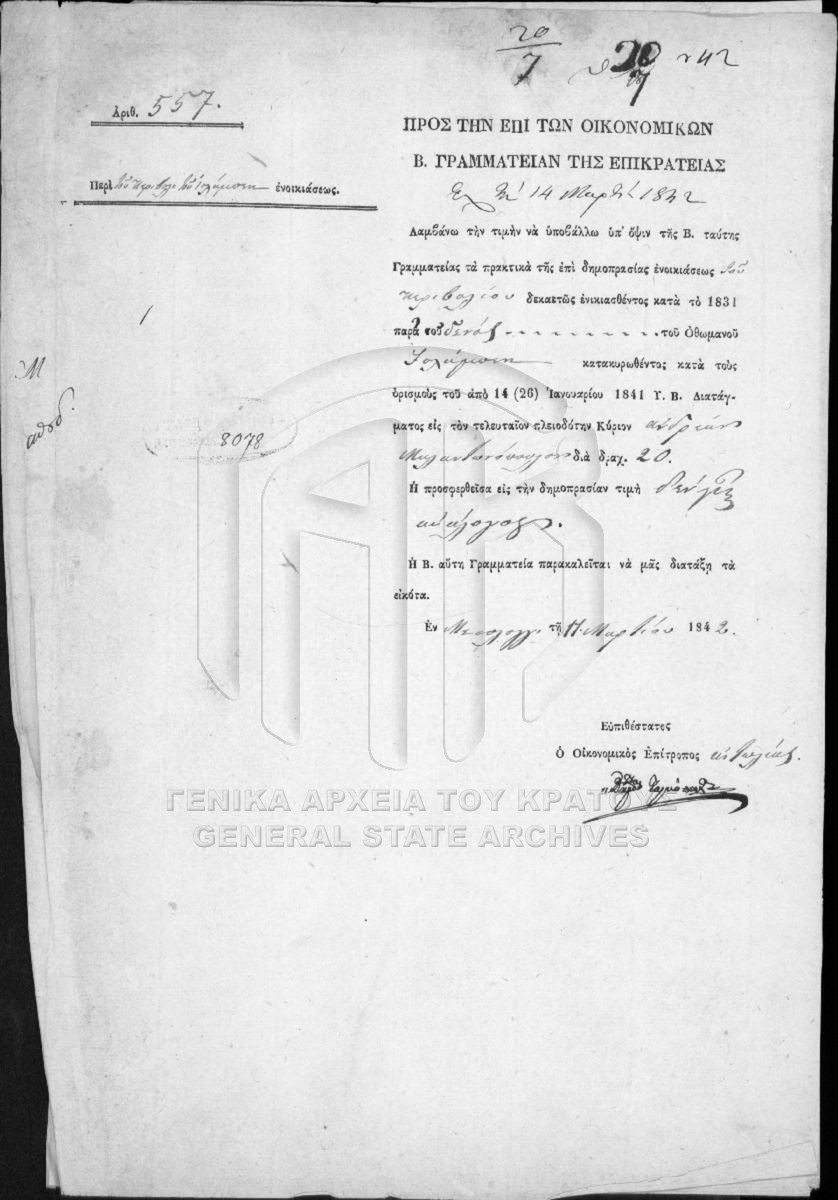 20
7
20
7
Ἀριθ. 557.
ΠΡΟΣ ΤΗΝ ΕΠΙ ΤΩΝ ΟΙΚΟΝΟΜΙΚΩΝ
Β. ΓΡΑΜΜΑΤΕΙΑΝ ΤΗΣ ΕΠΙΚΡΑΤΕΙΑΣ
Περὶ ἐνοικιάσεως.
14 Μαρτ 1842
Λαμβάνω τὴν τιμὴν νὰ ὑποβάλλω ὑπ' ὄψιν τῆς Β. ταύτης
Γραμματείας τὰ πρακτικὰ τῆς ἐπὶ δημοπρασίας ἐνοικιάσεως τοῦ
περιβολίου δεκαετῶς ἐνικιασθέντος κατὰ τὸ 1831
παρὰ τοῦ τοῦ Ὀθωμανοῦ
κατακυρωθέντος κατὰ τοὺς
ὁρισμοὺς τοῦ ἀπὸ 14 (26) Ἰανουαρίου 1841 Υ. Β. Διατάγ-
ματος εἰς τὸν τελευταῖον πλειοδότην Κύριον ἀνδρέαν
διὰ δραχ. 20.
Ἡ προσφερθεῖσα εἰς τὴν δημοπρασίαν τιμὴ
ἀνάλογος.
Ἡ Β. αὕτη Γραμματεία παρακαλεῖται νὰ μᾶς διατάξῃ τὰ
εἰκότα.
Ἐν Μεσολογγι τῇ 11 Μαρτίου 1842.
8078
Εὐπιθέστατες
Ὁ Οἰκονομικὸς Ἐπίτροπος
ΓΕΝΙΚΑ ΑΡΧΕΙΑ ΤΟΥ ΚΡΑΤΟΥΣ
GENERAL STATE ARCHIVES